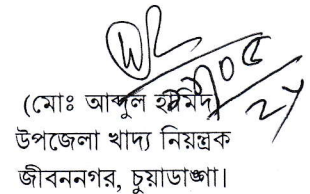 (মোঃ আব্দুল হামিদ)
উপজেলা খাদ্য নিয়ন্ত্রক
জীবননগর, চুয়াডাঙ্গা।